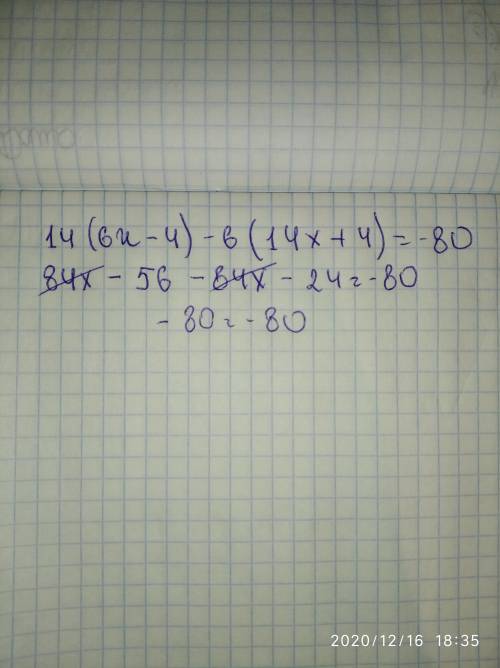 14(6x-4)-6(14x+4)=-80
84x-56-84x-24=-80
-80=-80
2020/12/16 18:35